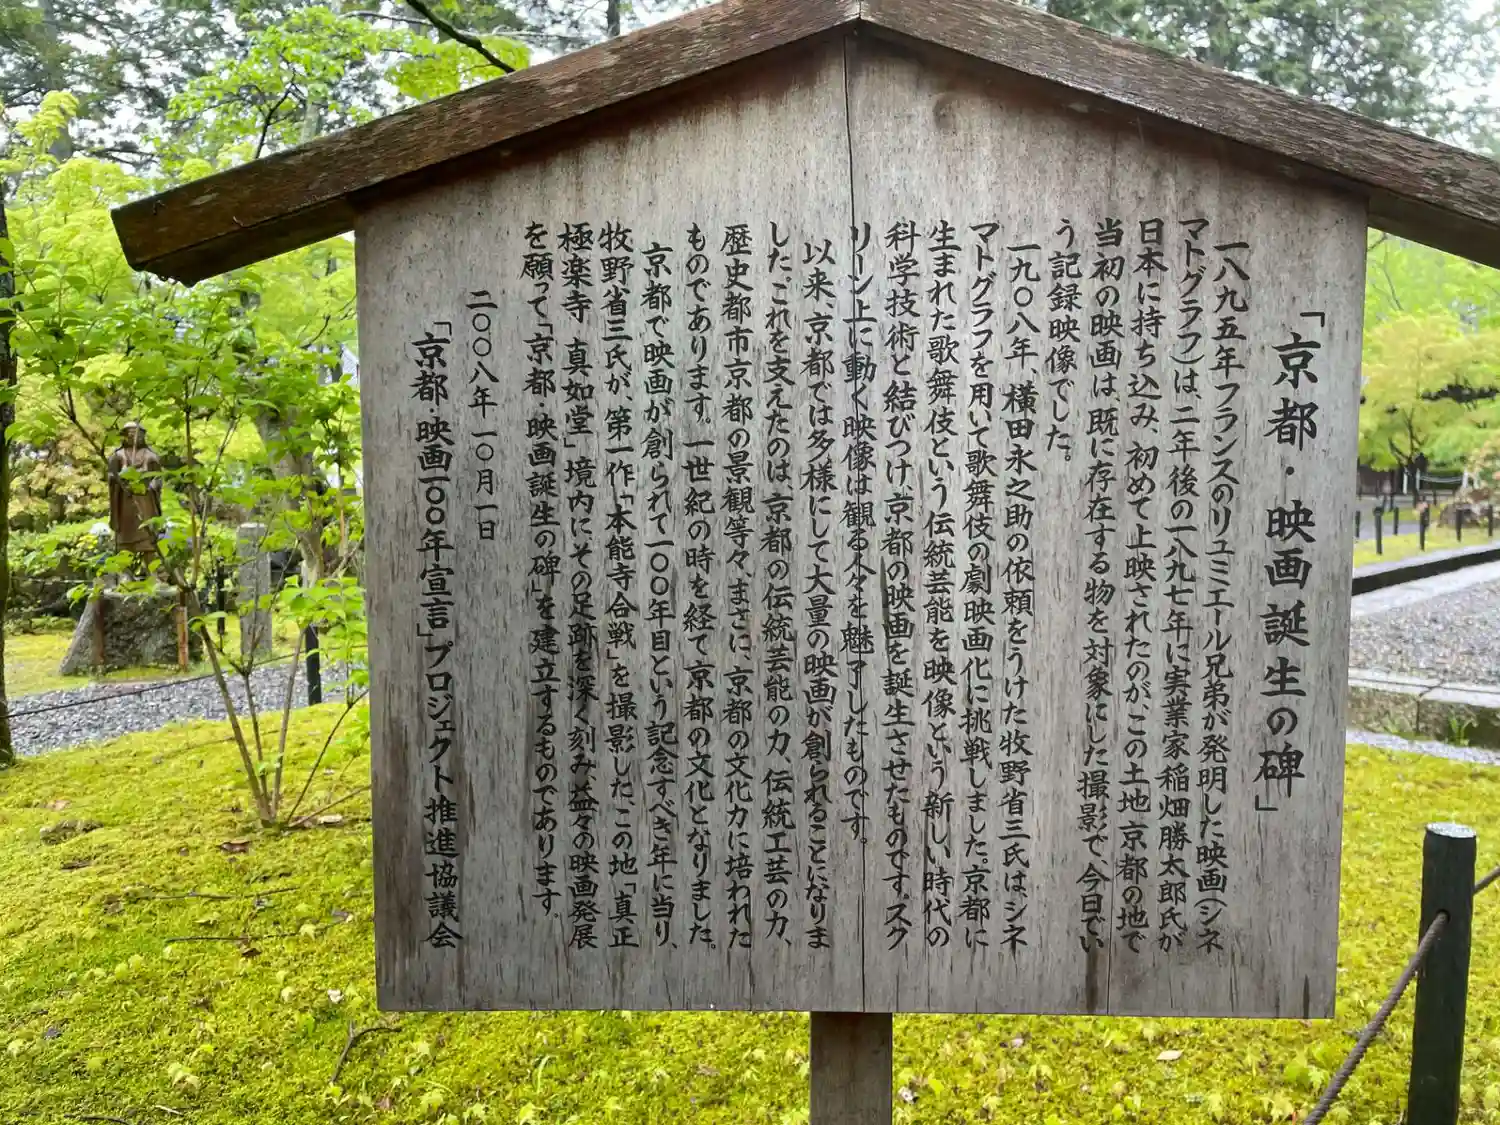 「京都・映画誕生の碑」
一八九五年フランスのリュミエール兄弟が発明した映画(シネ
マトグラフ)は、二年後の一八九七年に実業家稲畑勝太郎氏が
日本に持ち込み、初めて上映されたのが、この土地京都の地で
当初の映画は、既に存在する物を対象にした撮影で、今日でい
う記録映像でした。
一九〇八年、横田永之助の依頼をうけた牧野省三氏は、シネ
マトグラフを用いて歌舞伎の劇映画化に挑戦しました。京都に
生まれた歌舞伎という伝統芸能を映像という新しい時代の
科学技術と結びつけ、京都の映画を誕生させたものです。スク
リーン上に動く映像は観る人々を魅了したものです。
以来、京都では多様にして大量の映画が創られることになりま
した。これを支えたのは、京都の伝統芸能の力、伝統工芸の力、
歴史都市京都の景観等々、まさに、京都の文化力に培われた
ものであります。一世紀の時を経て京都の文化となりました。
京都で映画が創られて一〇〇年目という記念すべき年に当り、
牧野省三氏が、第一作「本能寺合戦」を撮影した、この地「真正
極楽寺 真如堂」境内にその足跡を深く刻み、益々の映画発展
を願って「京都・映画誕生の碑」を建立するものであります。
二〇〇八年 一〇月一日
「京都・映画一〇〇年宣言」プロジェクト推進協議会